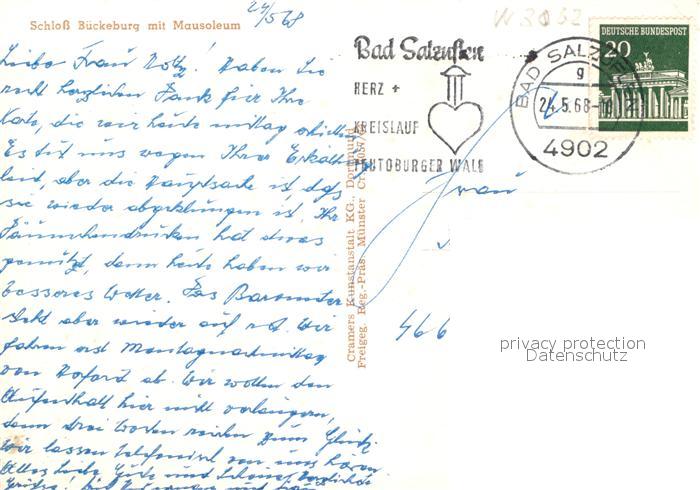 24/5 68
Schloß Bückeburg mit Mausoleum
Liebe Frau Notz! Haben Sie
recht herzlichen Dank für Ihre
Karte, die wir heute mittag erhielten.
Es tut uns wegen Ihrer Erkält.
leid, aber die Hauptsache ist, daß
sie wieder abgeklungen ist. Ihr
Däumchendrücken hat etwas
genützt, denn heute haben wir
besseres Wetter. Das Barometer
steht aber wieder auf
fahren erst Montagnachmittag
von Herford ab. Wir wollen den
Aufenthalt hier nicht verlängern,
denn drei Wochen reichen zum Glück.
Wir lassen telefonisch von uns hören
Alles Liebe Gute und schöne herzliche
Grüße!
Cramers Kunstanstalt KG., Dortmund
Freigeg. Reg.-Präs. Münster
Bad Salzuflen
HERZ +
KREISLAUF
TEUTOBURGER WALD
BAD SALZUFLEN
g
24.5.68
4902
DEUTSCHE BUNDESPOST
20
Frau
466
privacy protection
Datenschutz